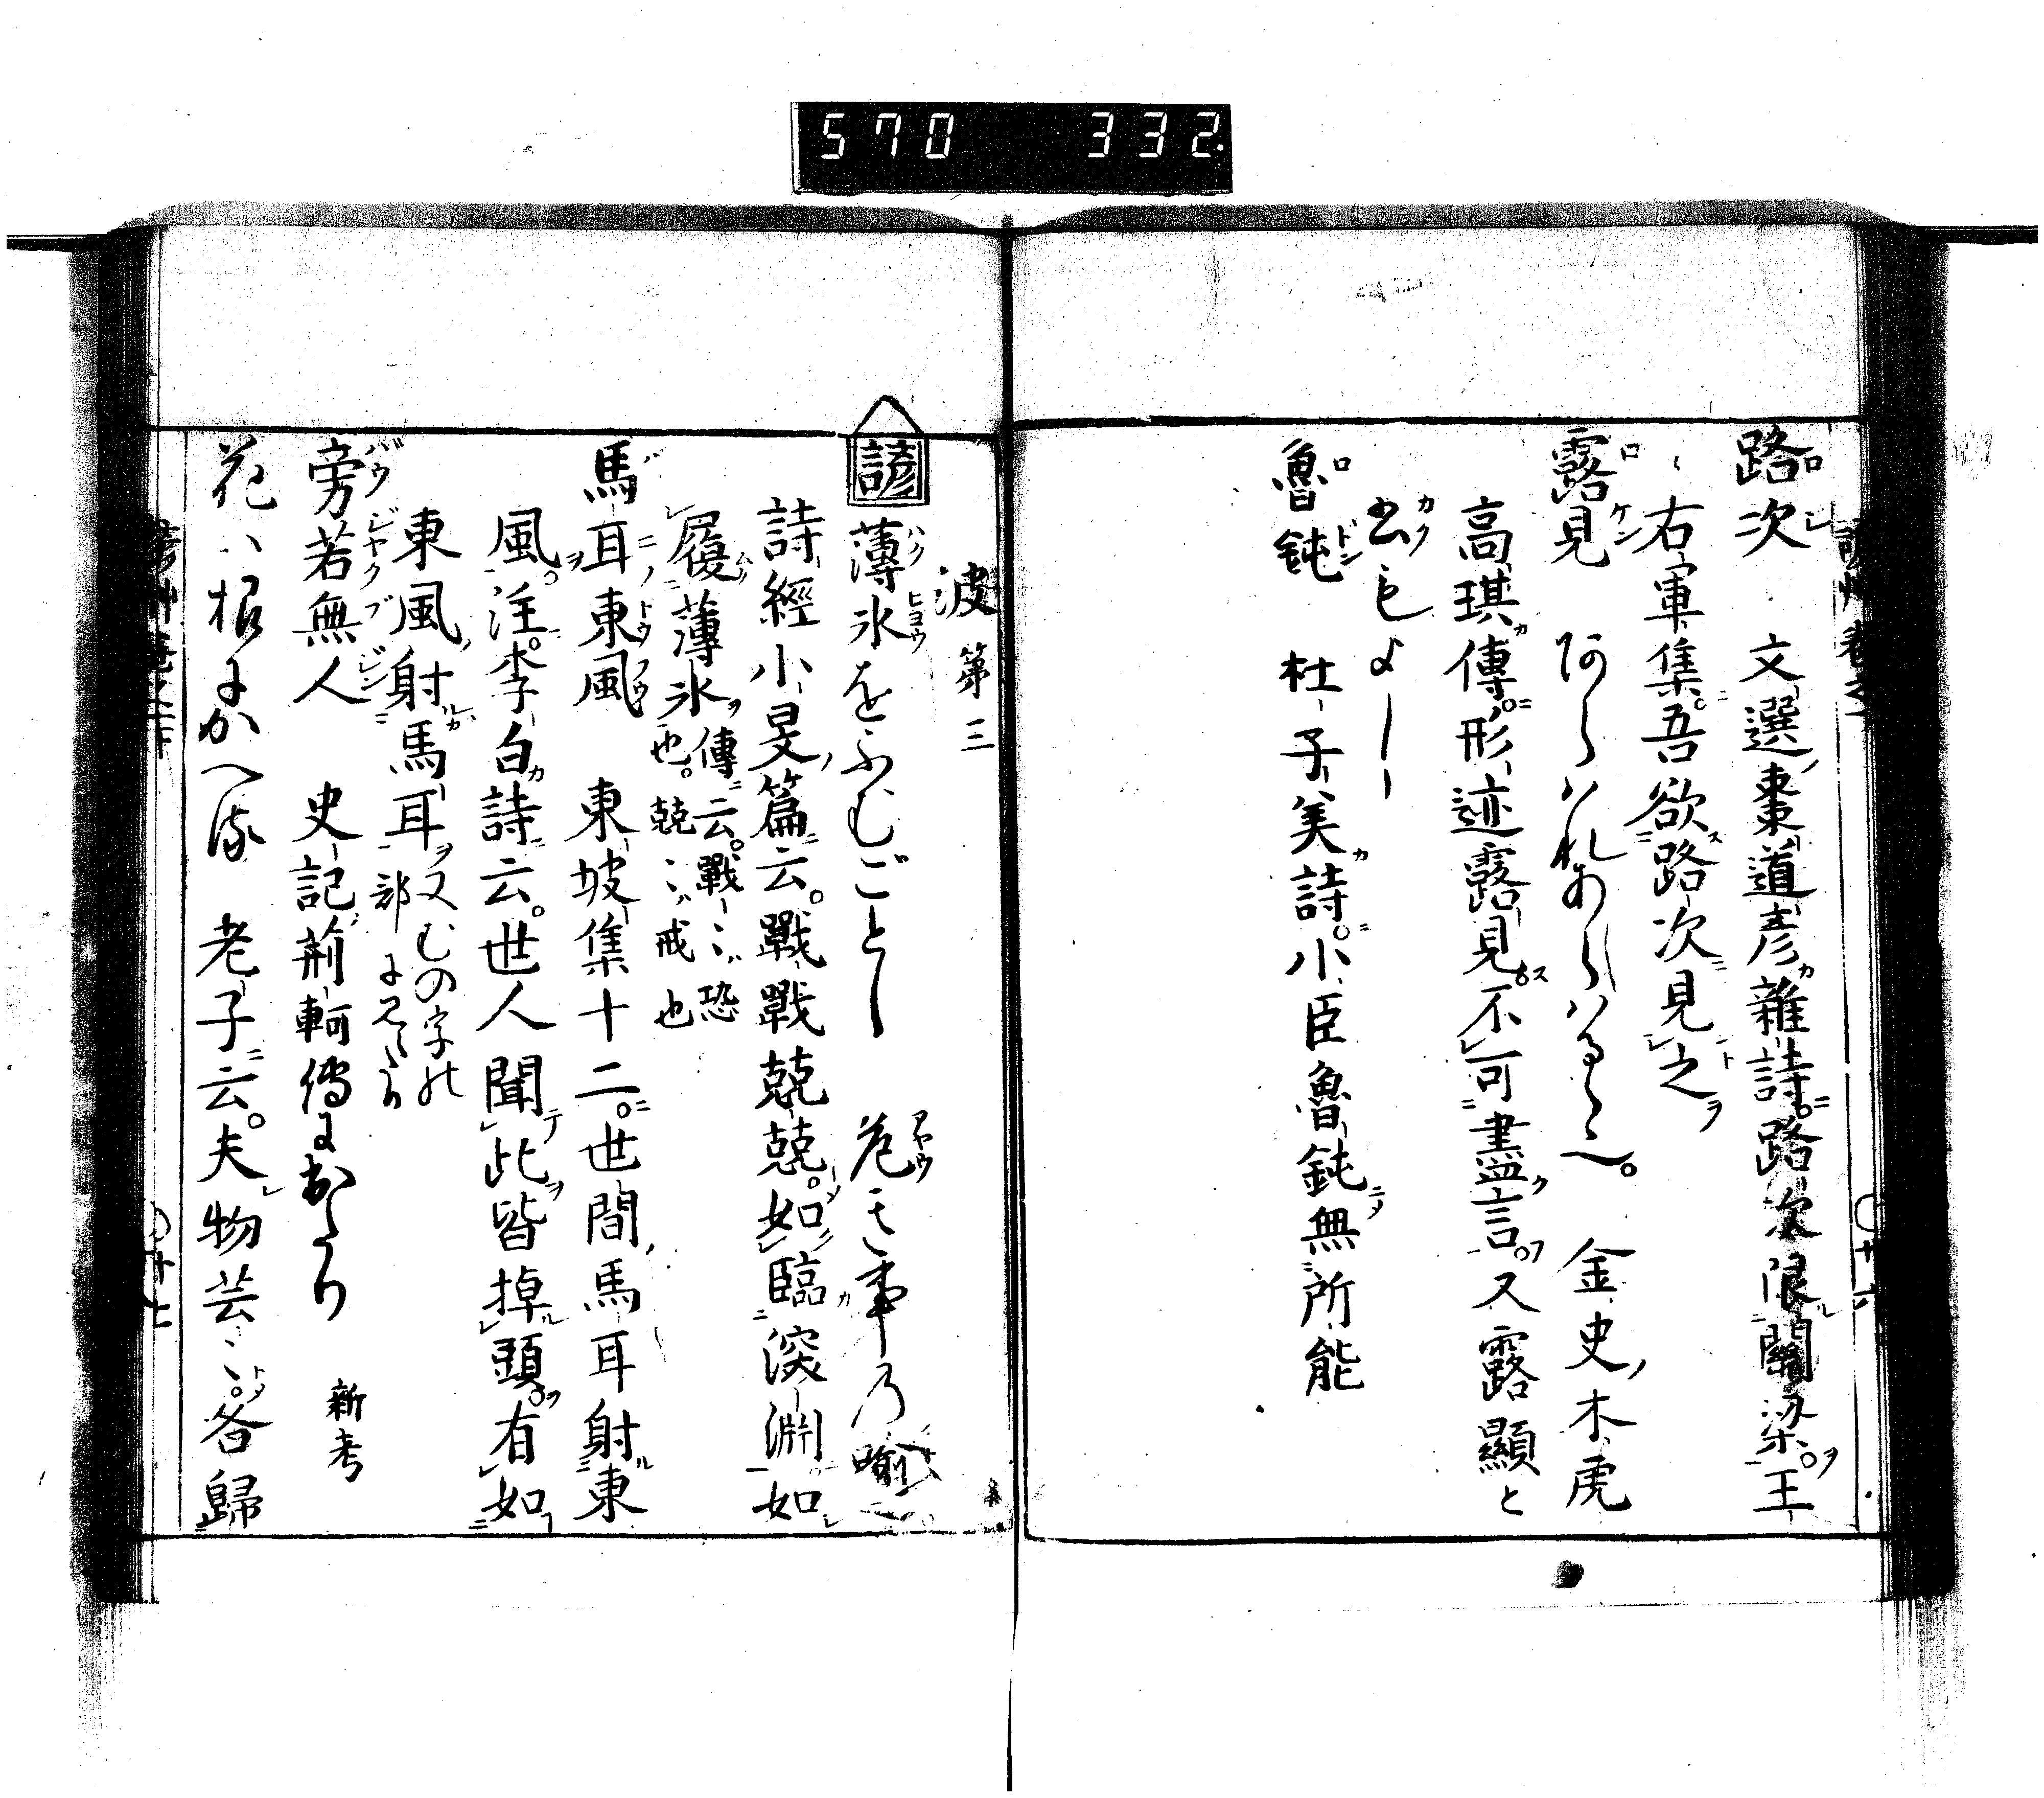 570 332.
路次 文選棗道彦雜詩。路次限關梁。王
右軍集。吾欲路次見之
露見 阿らハれあらハるゝ 金史木虎
高琪傳。形迹露見。不可盡言。又露顯と
もよし
魯鈍 杜子美詩。小臣魯鈍無所能
波 第三
諺
薄氷をふむごとし 危き事乃喩
詩經小旻篇云。戰戰兢兢。如臨深淵如
履薄氷 傳云。戰〻恐也。兢〻戒也
馬耳東風 東坡集十二。世間馬耳射東
風。注。李白詩云。世人聞此皆掉頭。有如
東風射馬耳 又むの字の部に
旁若無人 史記荊軻傳に出たり 新考
花ハ根にかへる 老子云。夫物芸〻。各歸